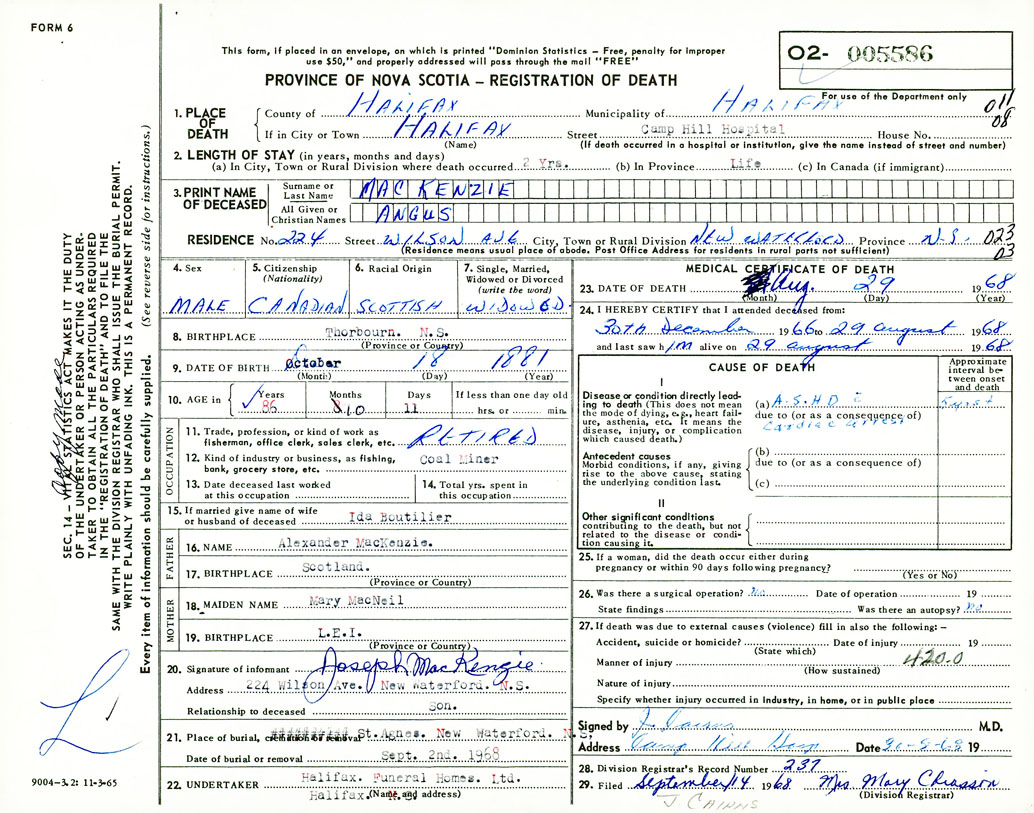 FORM 6
This form, if placed in an envelope, on which is printed "Dominion Statistics – Free, penalty for improper
use $50," and properly addressed will pass through the mail "FREE"
PROVINCE OF NOVA SCOTIA – REGISTRATION OF DEATH
O2- 005586
For use of the Department only
011
08
1. PLACE OF DEATH
County of HALIFAX Municipality of HALIFAX
If in City or Town HALIFAX Street Camp Hill Hospital House No.
(Name) (If death occurred in a hospital or institution, give the name instead of street and number)
2. LENGTH OF STAY (in years, months and days)
(a) In City, Town or Rural Division where death occurred 2 Yrs. (b) In Province Life (c) In Canada (if immigrant)
3. PRINT NAME OF DECEASED
Surname or Last Name MAC KENZIE
All Given or Christian Names ANGUS
RESIDENCE No. 224 Street WILSON AVE City, Town or Rural Division NEW WATERFORD Province N.S. 023
(Residence means usual place of abode. Post Office Address for residents in rural parts not sufficient) 03
4. Sex MALE
5. Citizenship (Nationality) CANADIAN
6. Racial Origin SCOTTISH
7. Single, Married, Widowed or Divorced (write the word) WIDOWED
8. BIRTHPLACE Thorbourn. N.S.
(Province or Country)
9. DATE OF BIRTH October 18 1881
(Month) (Day) (Year)
10. AGE in Years 86 Months 10 Days 11 If less than one day old hrs. or min.
OCCUPATION
11. Trade, profession, or kind of work as fisherman, office clerk, sales clerk, etc. RETIRED
12. Kind of industry or business, as fishing, bank, grocery store, etc. Coal Miner
13. Date deceased last worked at this occupation
14. Total yrs. spent in this occupation
15. If married give name of wife or husband of deceased Ida Boutilier
FATHER
16. NAME Alexander MacKenzie.
17. BIRTHPLACE Scotland.
(Province or Country)
MOTHER
18. MAIDEN NAME Mary MacNeil
19. BIRTHPLACE L.E.I.
(Province or Country)
20. Signature of informant Joseph MacKenzie.
Address 224 Wilson Ave. New Waterford. N.S.
Relationship to deceased Son.
21. Place of burial, cremation or removal St. Agnes. New Waterford. N.S.
Date of burial or removal Sept. 2nd. 1968
22. UNDERTAKER Halifax. Funeral Homes. Ltd.
Halifax. N.S.
(Name and address)
MEDICAL CERTIFICATE OF DEATH
23. DATE OF DEATH Aug. 29 1968
(Month) (Day) (Year)
24. I HEREBY CERTIFY that I attended deceased from:
30TH December 1966 to 29 August 1968
and last saw him alive on 29 August 1968
CAUSE OF DEATH
Approximate interval between onset and death
I
Disease or condition directly leading to death (This does not mean the mode of dying, e.g., heart failure, asthenia, etc. It means the disease, injury, or complication which caused death.)
(a) A.S.H.D
due to (or as a consequence of)
Cardiac arrest
Antecedent causes
Morbid conditions, if any, giving rise to the above cause, stating the underlying condition last.
(b)
due to (or as a consequence of)
(c)
II
Other significant conditions contributing to the death, but not related to the disease or condition causing it.
25. If a woman, did the death occur either during pregnancy or within 90 days following pregnancy?
(Yes or No)
26. Was there a surgical operation? No Date of operation 19
State findings Was there an autopsy? No
27. If death was due to external causes (violence) fill in also the following: –
Accident, suicide or homicide? Date of injury 19
(State which)
Manner of injury 420.0
(How sustained)
Nature of injury
Specify whether injury occurred in Industry, in home, or in public place
Signed by J. Cairns M.D.
Address Camp Hill Hosp Date 30-8-68 19
28. Division Registrar's Record Number 237
29. Filed September 14 1968 Mrs Mary Chiasson
(Division Registrar)
J CAIRNS
SEC. 14 – VITAL STATISTICS ACT MAKES IT THE DUTY
OF THE UNDERTAKER OR PERSON ACTING AS UNDER-
TAKER TO OBTAIN ALL THE PARTICULARS REQUIRED
IN THE "REGISTRATION OF DEATH" AND TO FILE THE
SAME WITH THE DIVISION REGISTRAR WHO SHALL ISSUE THE BURIAL PERMIT.
WRITE PLAINLY WITH UNFADING INK. THIS IS A PERMANENT RECORD.
Every item of information should be carefully supplied. (See reverse side for instructions.)
9004-3.2: 11-3-65